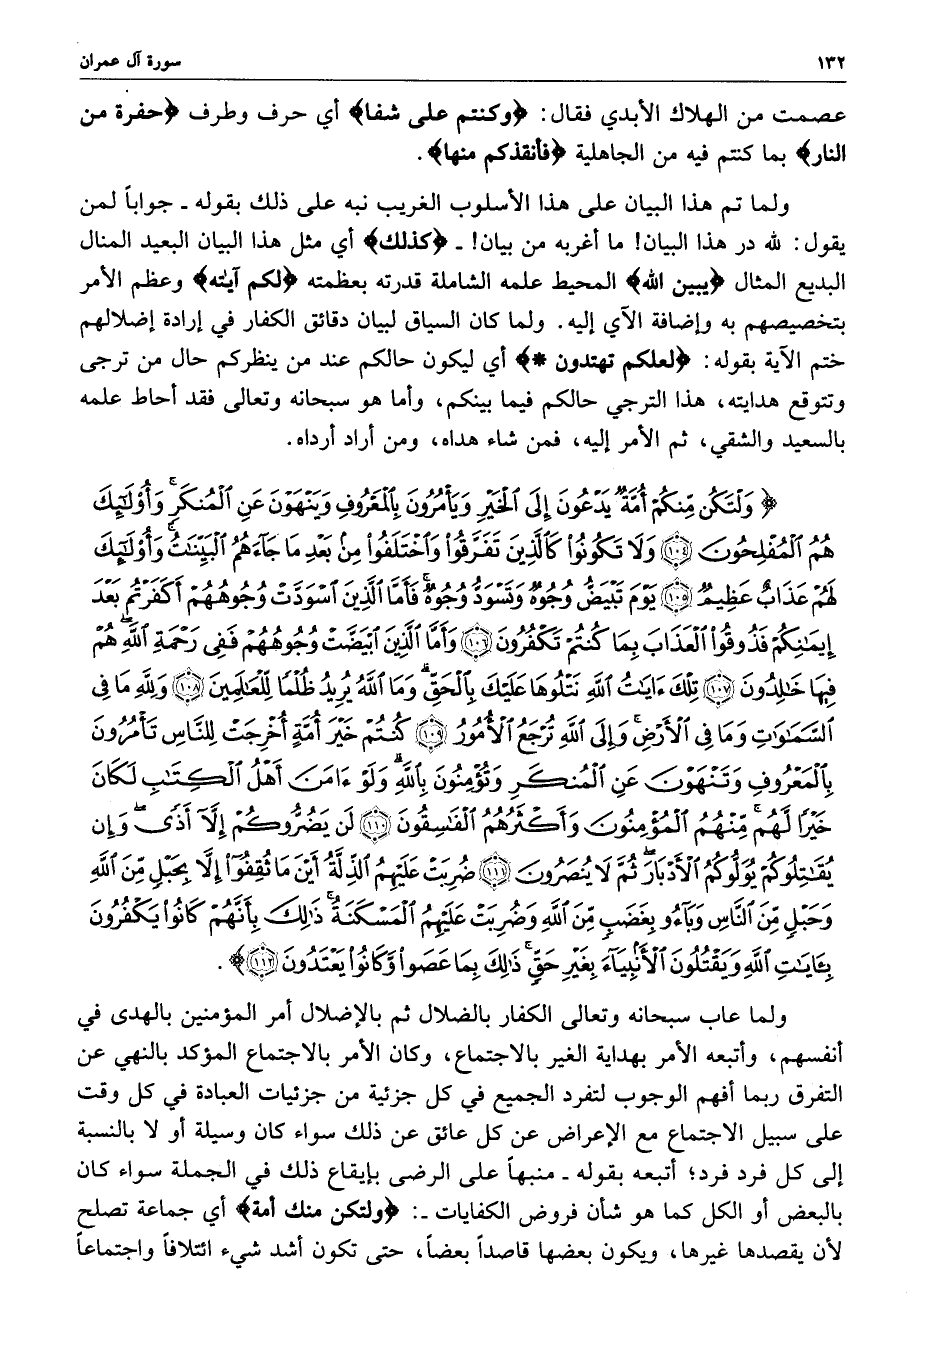 ١٣٢ سورة آل عمران
عصمت من الهلاك الأبدي فقال: ﴿وكنتم على شفا﴾ أي حرف وطرف ﴿حفرة من
النار﴾ بما كنتم فيه من الجاهلية ﴿فأنقذكم منها﴾.
ولما تم هذا البيان على هذا الأسلوب الغريب نبه على ذلك بقوله ـ جواباً لمن
يقول: لله در هذا البيان! ما أغربه من بيان! ـ ﴿كذلك﴾ أي مثل هذا البيان البعيد المنال
البديع المثال ﴿يبين الله﴾ المحيط علمه الشاملة قدرته بعظمته ﴿لكم آيته﴾ وعظم الأمر
بتخصيصهم به وإضافة الآي إليه. ولما كان السياق لبيان دقائق الكفار في إرادة إضلالهم
ختم الآية بقوله: ﴿لعلكم تهتدون *﴾ أي ليكون حالكم عند من ينظركم حال من ترجى
وتتوقع هدايته، هذا الترجي حالكم فيما بينكم، وأما هو سبحانه وتعالى فقد أحاط علمه
بالسعيد والشقي، ثم الأمر إليه، فمن شاء هداه، ومن أراد أرداه.
﴿وَلْتَكُن مِّنكُمْ أُمَّةٌ يَدْعُونَ إِلَى ٱلْخَيْرِ وَيَأْمُرُونَ بِٱلْمَعْرُوفِ وَيَنْهَوْنَ عَنِ ٱلْمُنكَرِ ۚ وَأُو۟لَٰٓئِكَ
هُمُ ٱلْمُفْلِحُونَ ١٠٤ وَلَا تَكُونُوا۟ كَٱلَّذِينَ تَفَرَّقُوا۟ وَٱخْتَلَفُوا۟ مِنۢ بَعْدِ مَا جَآءَهُمُ ٱلْبَيِّنَٰتُ ۚ وَأُو۟لَٰٓئِكَ
لَهُمْ عَذَابٌ عَظِيمٌ ١٠٥ يَوْمَ تَبْيَضُّ وُجُوهٌ وَتَسْوَدُّ وُجُوهٌ ۚ فَأَمَّا ٱلَّذِينَ ٱسْوَدَّتْ وُجُوهُهُمْ أَكَفَرْتُم بَعْدَ
إِيمَٰنِكُمْ فَذُوقُوا۟ ٱلْعَذَابَ بِمَا كُنتُمْ تَكْفُرُونَ ١٠٦ وَأَمَّا ٱلَّذِينَ ٱبْيَضَّتْ وُجُوهُهُمْ فَفِى رَحْمَةِ ٱللَّهِ ۖ هُمْ
فِيهَا خَٰلِدُونَ ١٠٧ تِلْكَ ءَايَٰتُ ٱللَّهِ نَتْلُوهَا عَلَيْكَ بِٱلْحَقِّ ۗ وَمَا ٱللَّهُ يُرِيدُ ظُلْمًا لِّلْعَٰلَمِينَ ١٠٨ وَلِلَّهِ مَا فِى
ٱلسَّمَٰوَٰتِ وَمَا فِى ٱلْأَرْضِ ۚ وَإِلَى ٱللَّهِ تُرْجَعُ ٱلْأُمُورُ ١٠٩ كُنتُمْ خَيْرَ أُمَّةٍ أُخْرِجَتْ لِلنَّاسِ تَأْمُرُونَ
بِٱلْمَعْرُوفِ وَتَنْهَوْنَ عَنِ ٱلْمُنكَرِ وَتُؤْمِنُونَ بِٱللَّهِ ۗ وَلَوْ ءَامَنَ أَهْلُ ٱلْكِتَٰبِ لَكَانَ
خَيْرًا لَّهُم ۚ مِّنْهُمُ ٱلْمُؤْمِنُونَ وَأَكْثَرُهُمُ ٱلْفَٰسِقُونَ ١١٠ لَن يَضُرُّوكُمْ إِلَّآ أَذًى ۖ وَإِن
يُقَٰتِلُوكُمْ يُوَلُّوكُمُ ٱلْأَدْبَارَ ۖ ثُمَّ لَا يُنصَرُونَ ١١١ ضُرِبَتْ عَلَيْهِمُ ٱلذِّلَّةُ أَيْنَ مَا ثُقِفُوٓا۟ إِلَّا بِحَبْلٍ مِّنَ ٱللَّهِ
وَحَبْلٍ مِّنَ ٱلنَّاسِ وَبَآءُو بِغَضَبٍ مِّنَ ٱللَّهِ وَضُرِبَتْ عَلَيْهِمُ ٱلْمَسْكَنَةُ ۚ ذَٰلِكَ بِأَنَّهُمْ كَانُوا۟ يَكْفُرُونَ
بِـَٔايَٰتِ ٱللَّهِ وَيَقْتُلُونَ ٱلْأَنۢبِيَآءَ بِغَيْرِ حَقٍّ ۚ ذَٰلِكَ بِمَا عَصَوا۟ وَّكَانُوا۟ يَعْتَدُونَ ١١٢﴾.
ولما عاب سبحانه وتعالى الكفار بالضلال ثم بالإضلال أمر المؤمنين بالهدى في
أنفسهم، وأتبعه الأمر بهداية الغير بالاجتماع، وكان الأمر بالاجتماع المؤكد بالنهي عن
التفرق ربما أفهم الوجوب لتفرد الجميع في كل جزئية من جزئيات العبادة في كل وقت
على سبيل الاجتماع مع الإعراض عن كل عائق عن ذلك سواء كان وسيلة أو لا بالنسبة
إلى كل فرد فرد؛ أتبعه بقوله ـ منبهاً على الرضى بإيقاع ذلك في الجملة سواء كان
بالبعض أو الكل كما هو شأن فروض الكفايات ـ: ﴿ولتكن منك أمة﴾ أي جماعة تصلح
لأن يقصدها غيرها، ويكون بعضها قاصداً بعضاً، حتى تكون أشد شيء ائتلافاً واجتماعاً